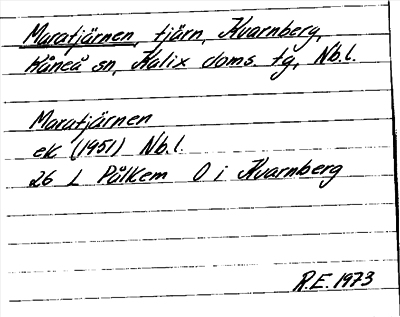 Maratjärnen, tjärn, Kvarnberg,
Råneå sn, Kalix doms. tg, Nb.l.
Maratjärnen
ek (1951) Nb.l.
26 L Pålkem O i Kvarnberg
R.E. 1973